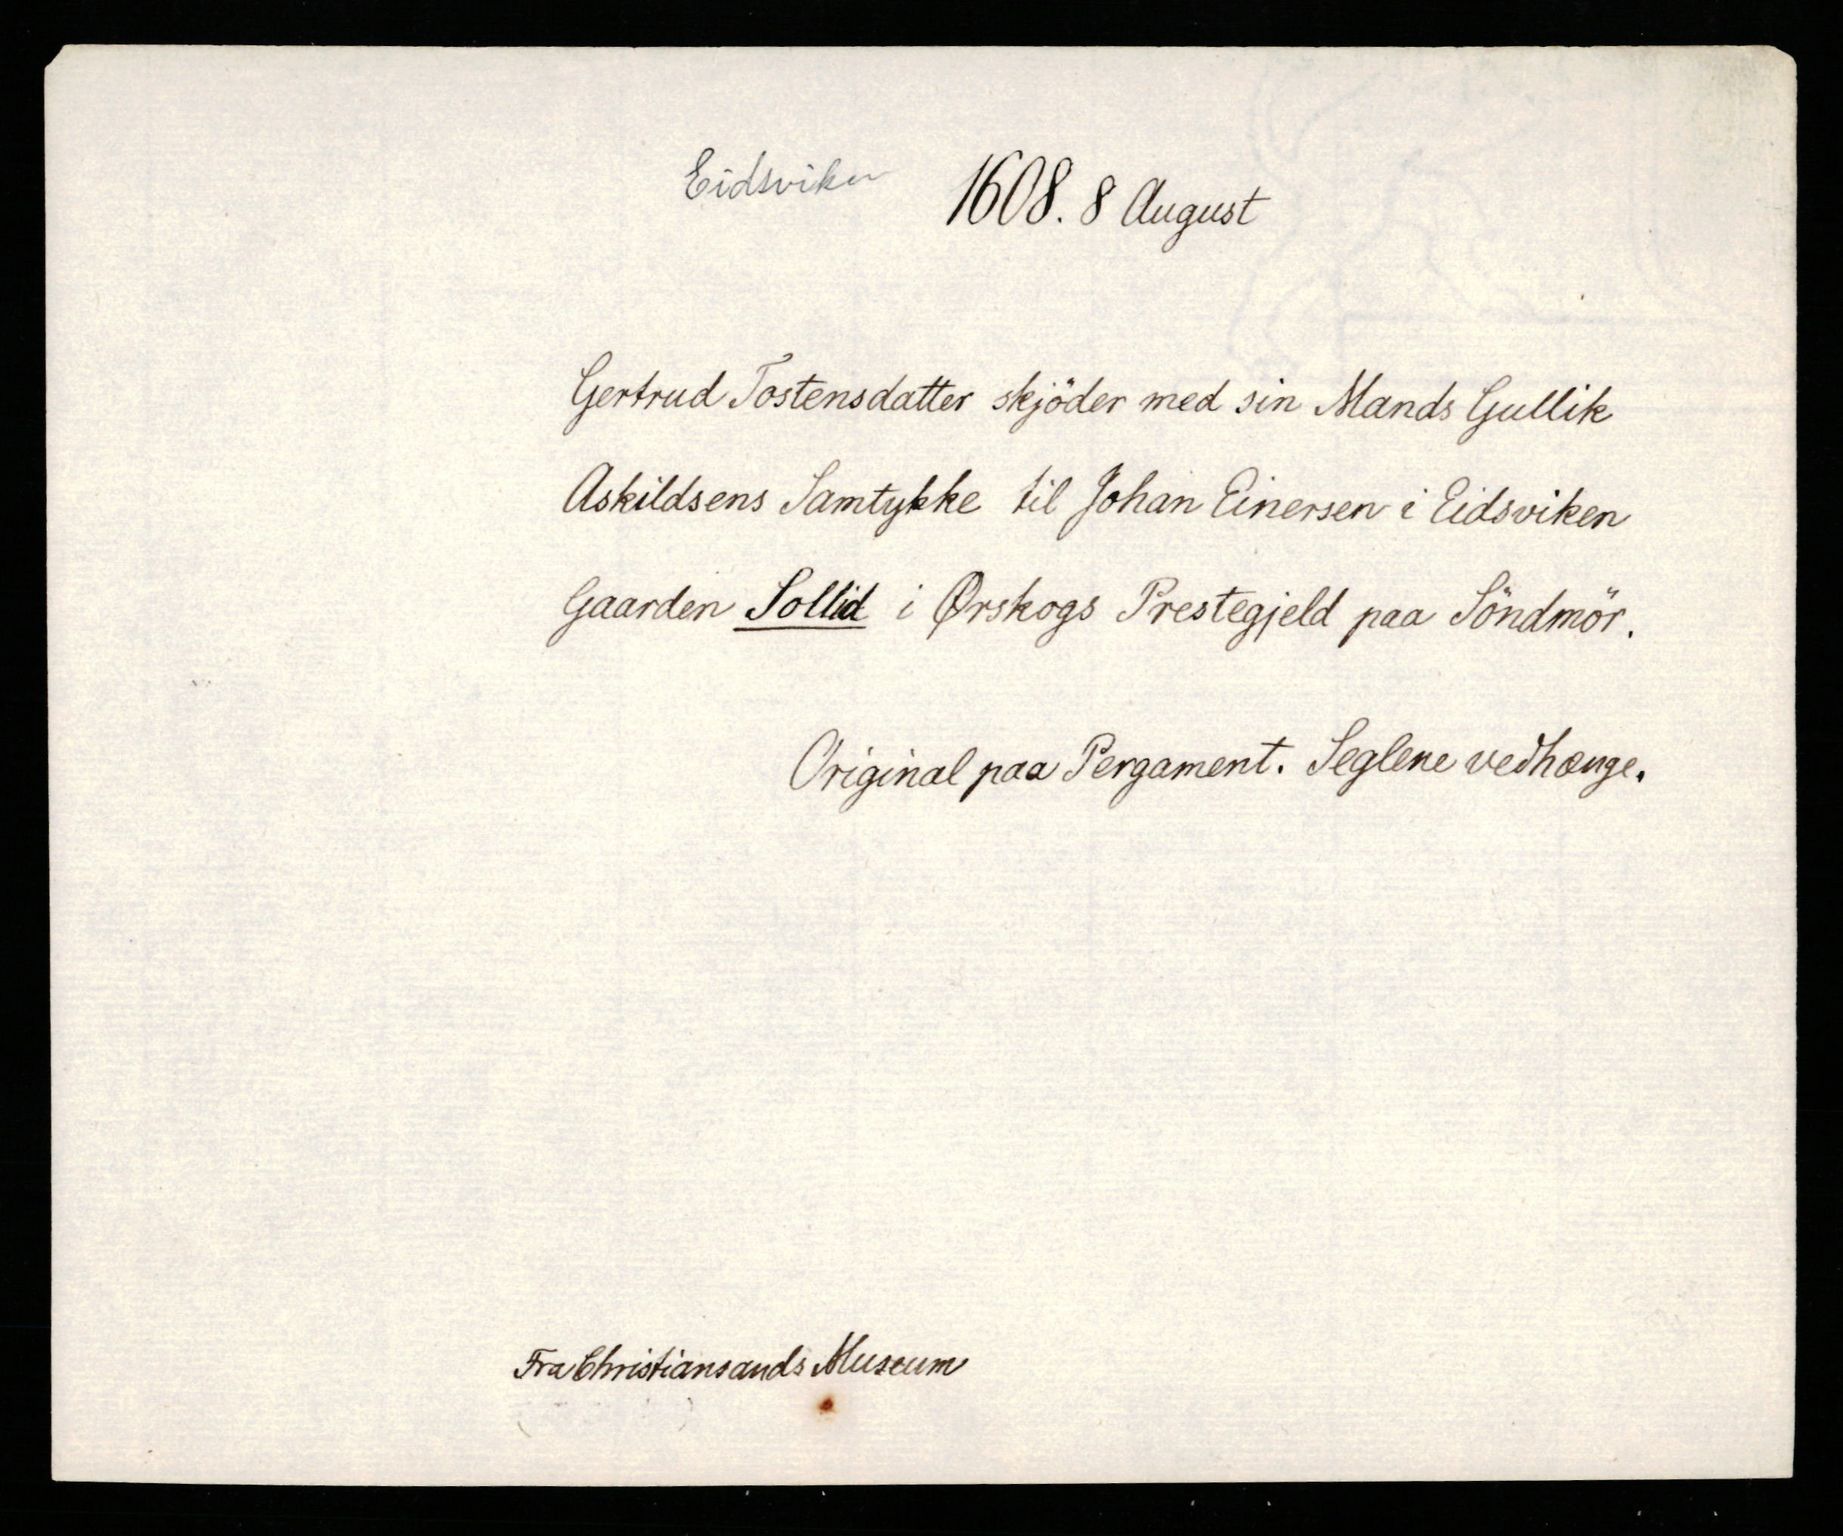 Eidsviken 1608. 8 August
Gertrud Tostensdatter skjöder med sin Mands Gullik
Askildsens Samtykke til Johan Einersen i Eidsviken
Gaarden Sollid i Ørskogs Prestegjeld paa Söndmör.
Original paa Pergament. Seglene vedhænge.
Fra Christiansands Museum